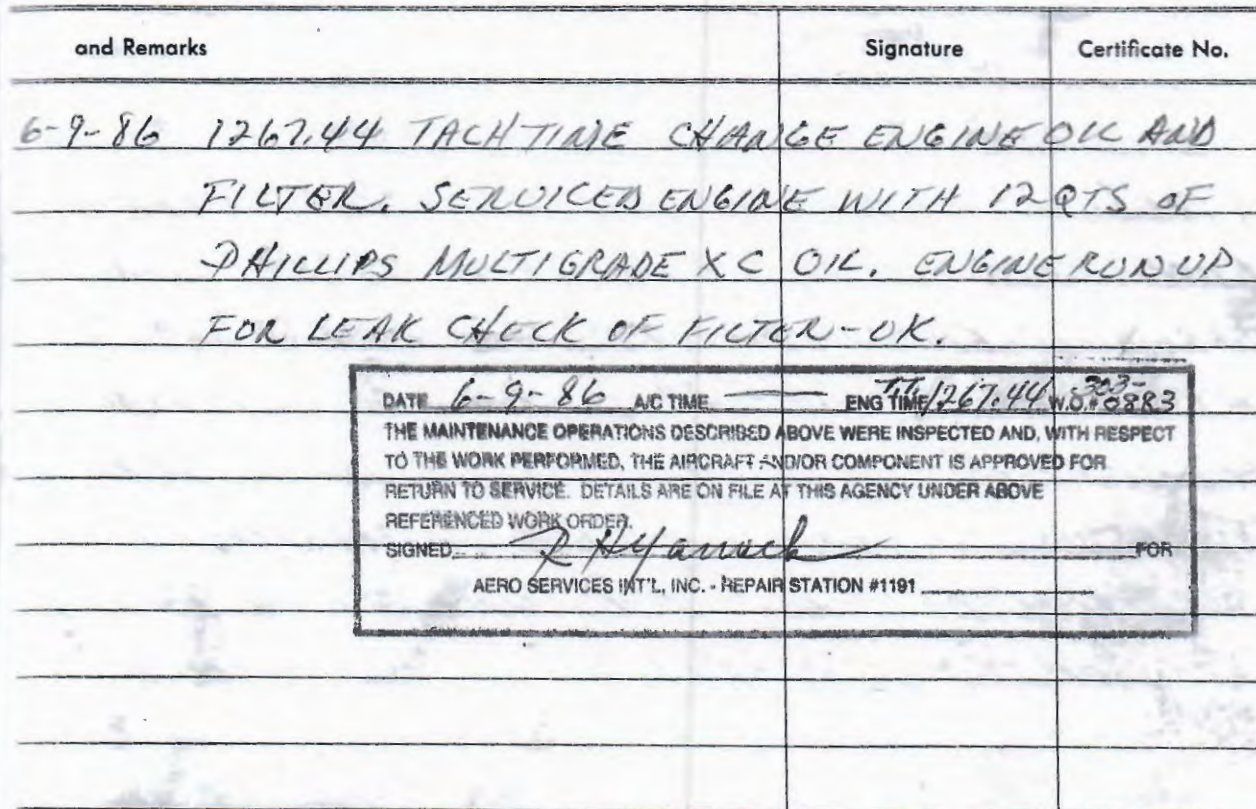 and Remarks Signature Certificate No.
6-9-86 1267.44 TACH TIME CHANGE ENGINE OIL AND
FILTER. SERVICED ENGINE WITH 12 QTS OF
PHILLIPS MULTIGRADE XC OIL. ENGINE RUN UP
FOR LEAK CHECK OF FILTER-OK.
DATE 6-9-86 A/C TIME — ENG TIME T.T. 1267.44 W.O.# 303-0883
THE MAINTENANCE OPERATIONS DESCRIBED ABOVE WERE INSPECTED AND, WITH RESPECT
TO THE WORK PERFORMED, THE AIRCRAFT AND/OR COMPONENT IS APPROVED FOR
RETURN TO SERVICE. DETAILS ARE ON FILE AT THIS AGENCY UNDER ABOVE
REFERENCED WORK ORDER.
SIGNED FOR
AERO SERVICES INT'L, INC. - REPAIR STATION #1191